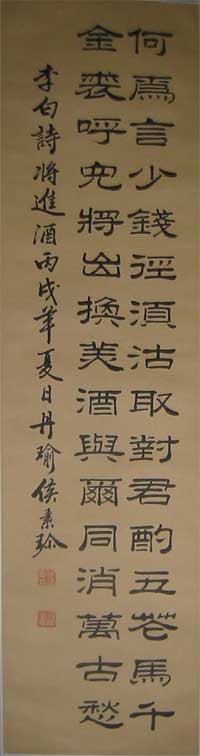 何爲言少錢徑湏沽取對君酌五花馬千
金裘呼兒將出換美酒與爾同消萬古愁
李白詩將進酒丙戌年夏日丹瑜侯素珍